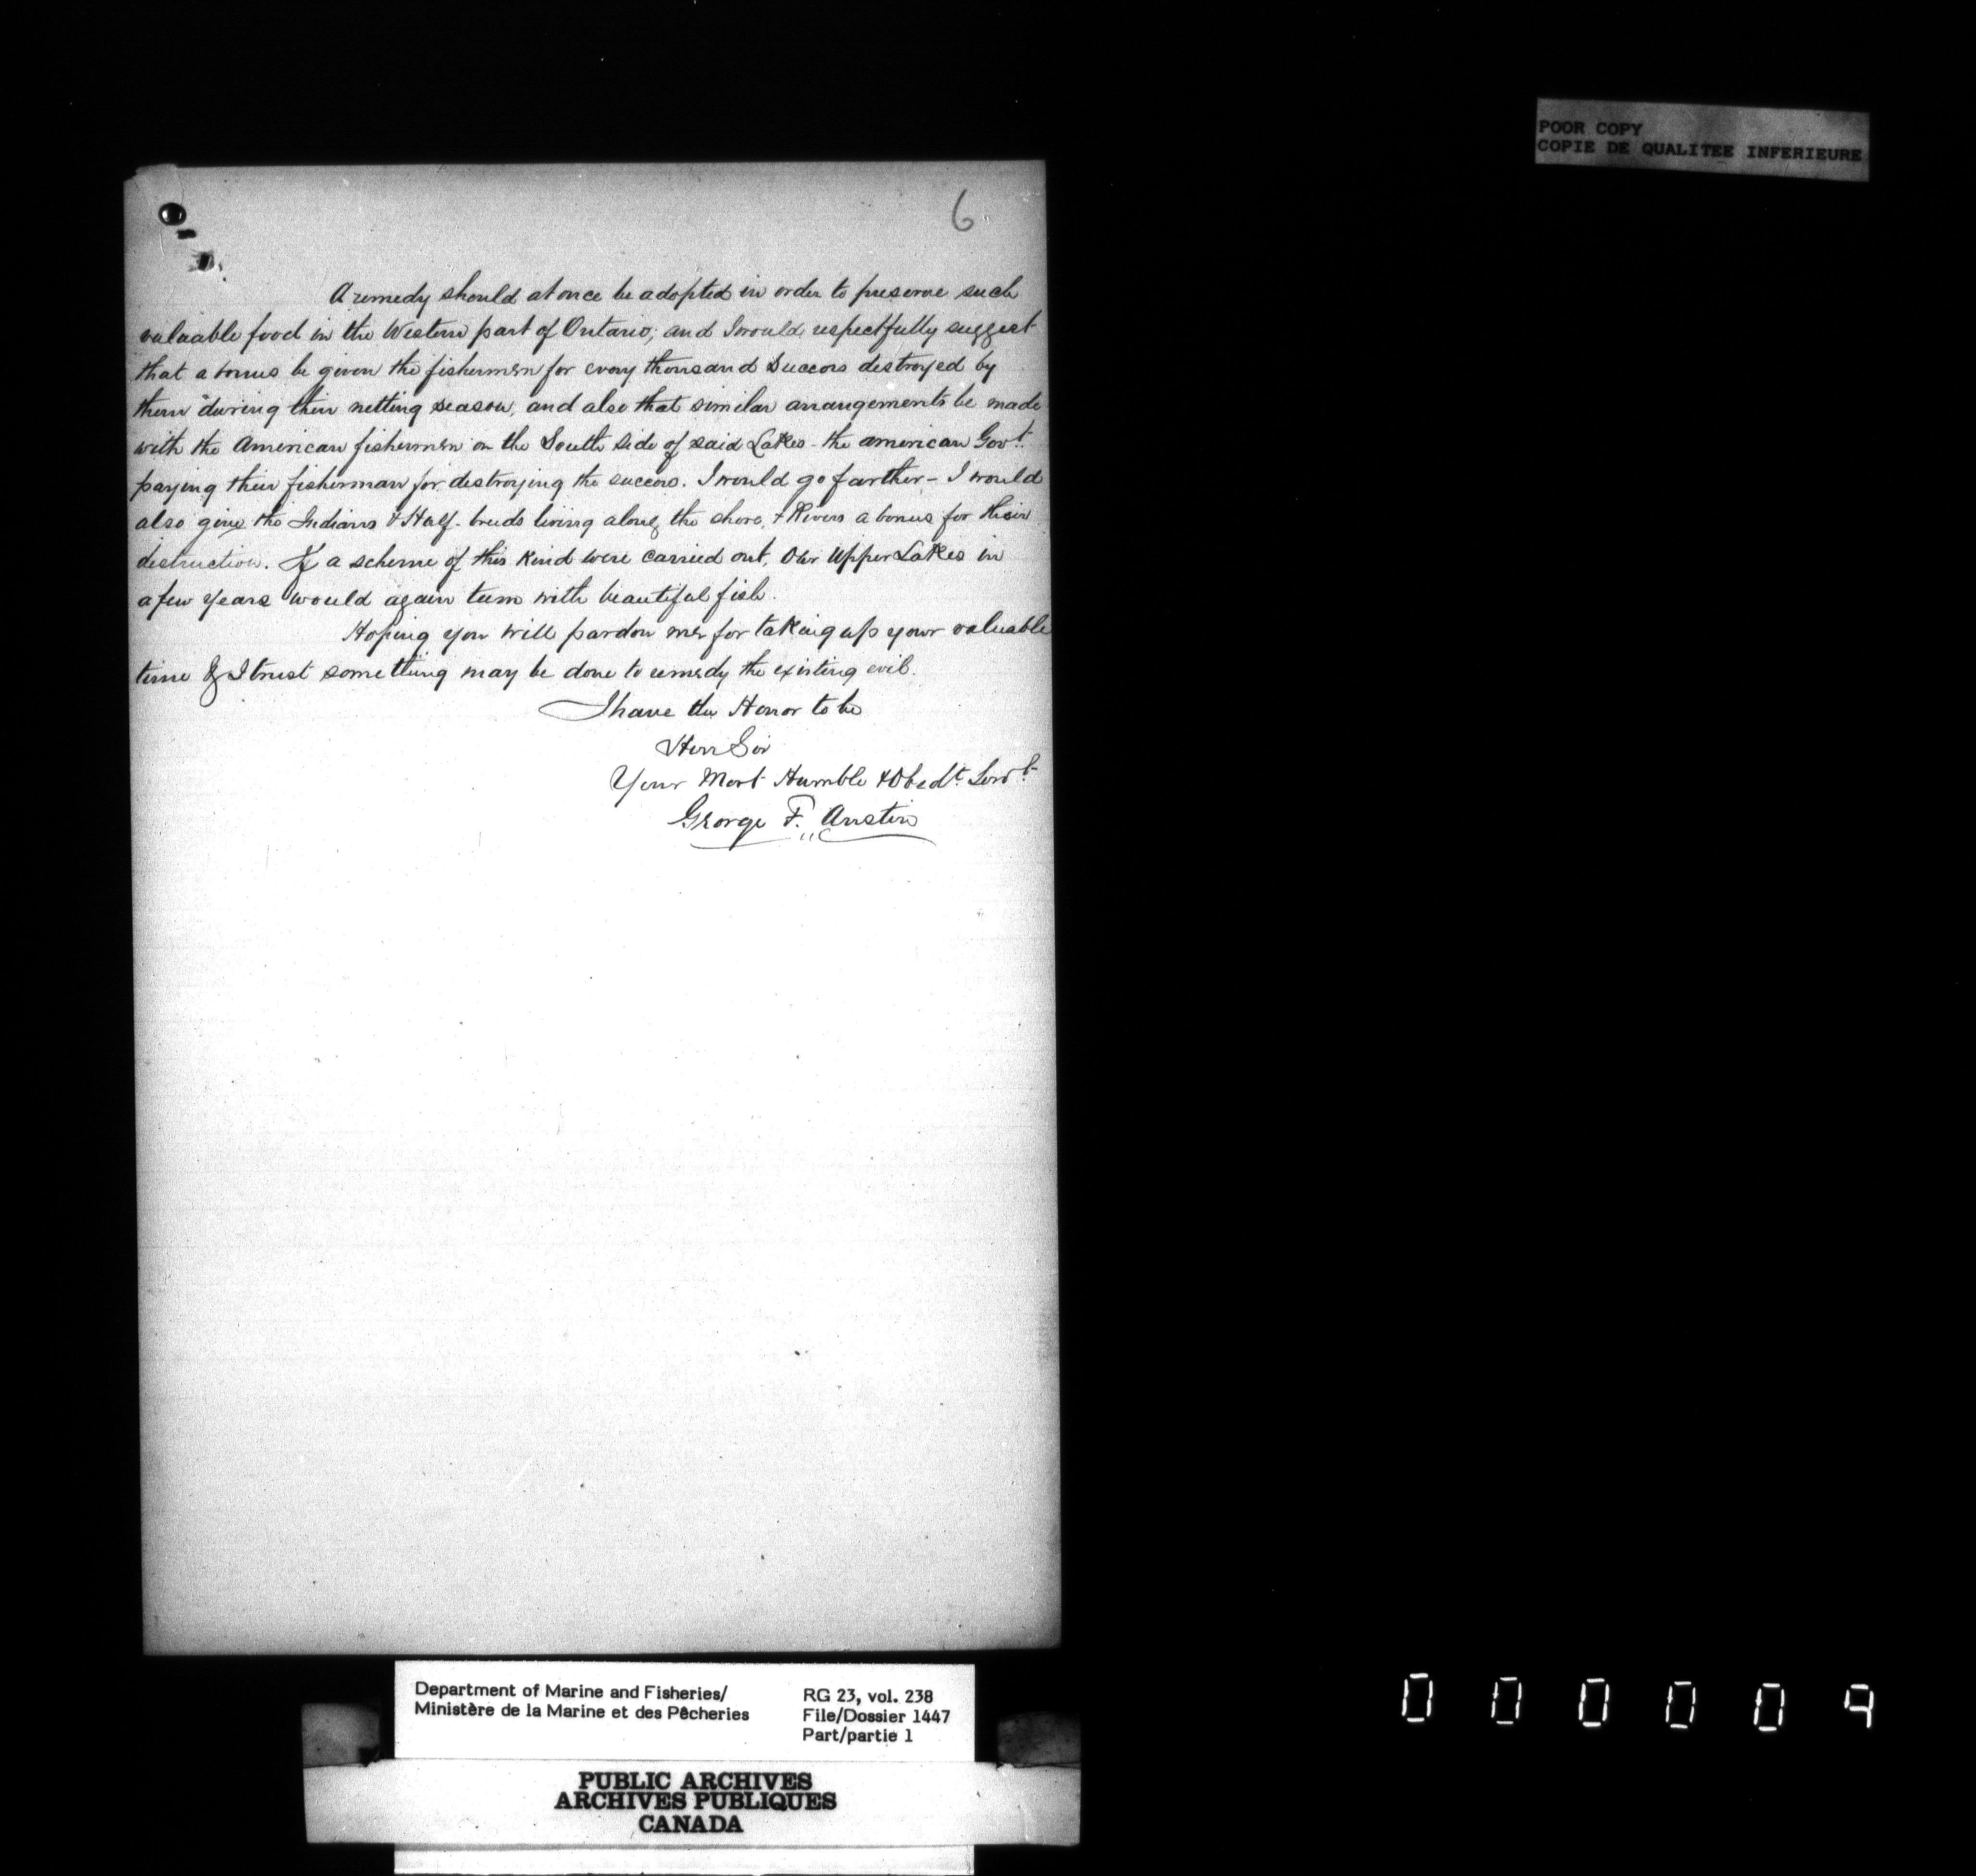 POOR COPY
COPIE DE QUALITEE INFERIEURE
6
A remedy should at once be adopted in order to preserve such
valuable food in the Western part of Ontario; and I would respectfully suggest
that a bonus be given the fishermen for every thousand Succors destroyed by
them during their netting season, and also that similar arrangements be made
with the American fishermen on the South side of said Lakes - the american Govt.
paying their fisherman for destroying the succors. I would go farther - I would
also give the Indians & Half-breeds living along the shore, & Rivers a bonus for their
destruction. If a scheme of this kind were carried out, Our Upper Lakes in
a few years would again teem with beautiful fish.
Hoping you will pardon me for taking up your valuable
time & I trust something may be done to remedy the existing evil.
I have the Honor to be
Hon Sir
Your Most Humble & Obedt. Servt.
George F. Austin
Department of Marine and Fisheries/
Ministère de la Marine et des Pêcheries
RG 23, vol. 238
File/Dossier 1447
Part/partie 1
PUBLIC ARCHIVES
ARCHIVES PUBLIQUES
CANADA
000009